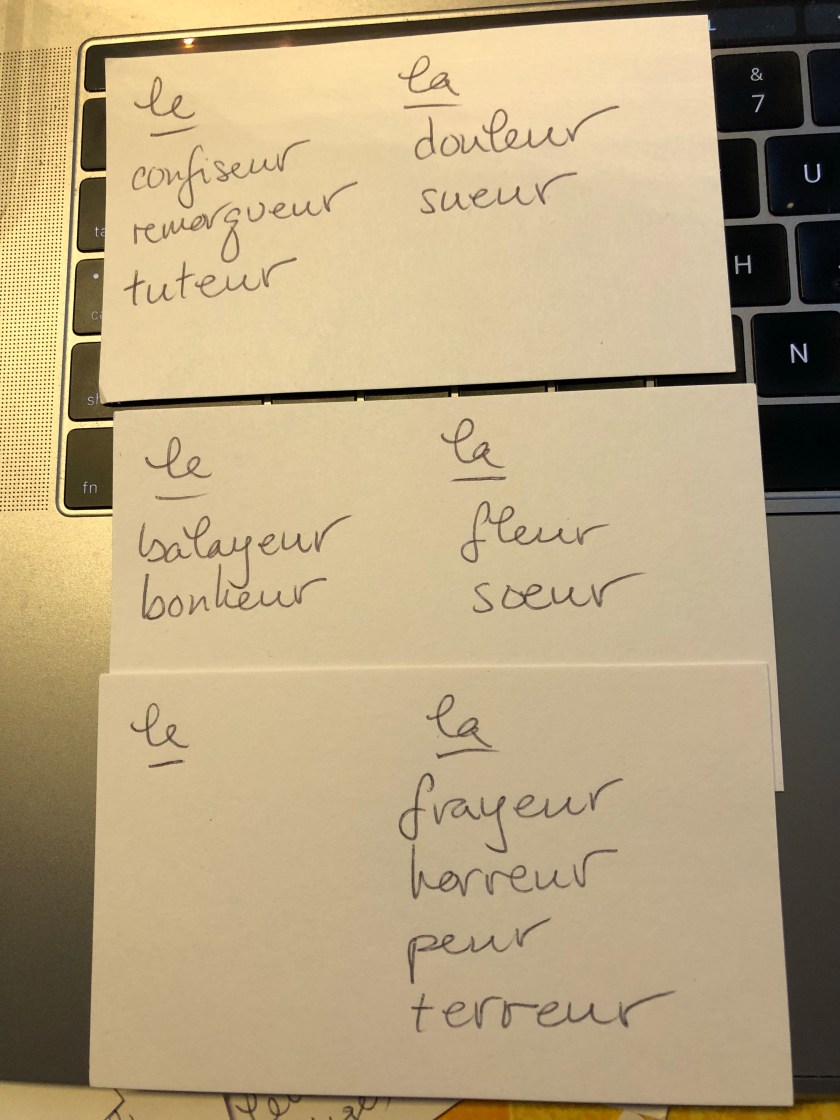 le la
confiseur douleur
remorqueur sueur
tuteur
le la
balayeur fleur
bonheur soeur
le la
frayeur
horreur
peur
terreur
&
7
U
H
N
fn